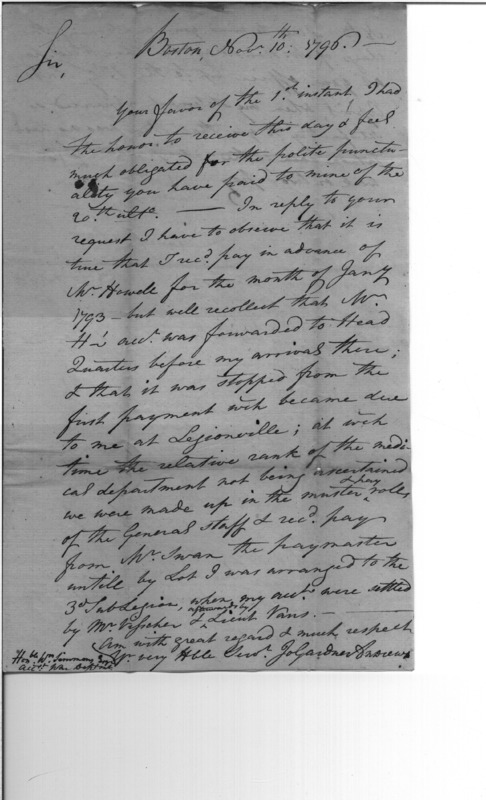 Boston, Nov.r 10.th 1796. —
Sir,
Your favor of the 1.st instant, I had
the honor to receive this day & feel
much obligated for the polite punctu-
ality you have paid to mine of the
20.th ulto. — In reply to your
request I have to observe that it is
true that I rec.d pay in advance of
Mr. Howell for the month of Jany
1793 — but well recollect that Mr.
H's acc.t was forwarded to Head
Quarters before my arrival there;
& that it was stopped from the
first payment wch became due
to me at Legionville; at wch
time the relative rank of the medi-
cal department not being ascertained
we were made up in the muster & pay rolls
of the General Staff & rec.d pay
from Mr. Swan the paymaster
untill by Lot I was arranged to the
3d SubLegion, when my acc.ts were settled
by Mr. Visscher & afterwards by Lieut Vans. —
Am with great regard & much respect
Yr. very Hble Serv.t Jo Gardner Andrews
Hon.ble Wm Simmons Esqr
Acct. War Dept.